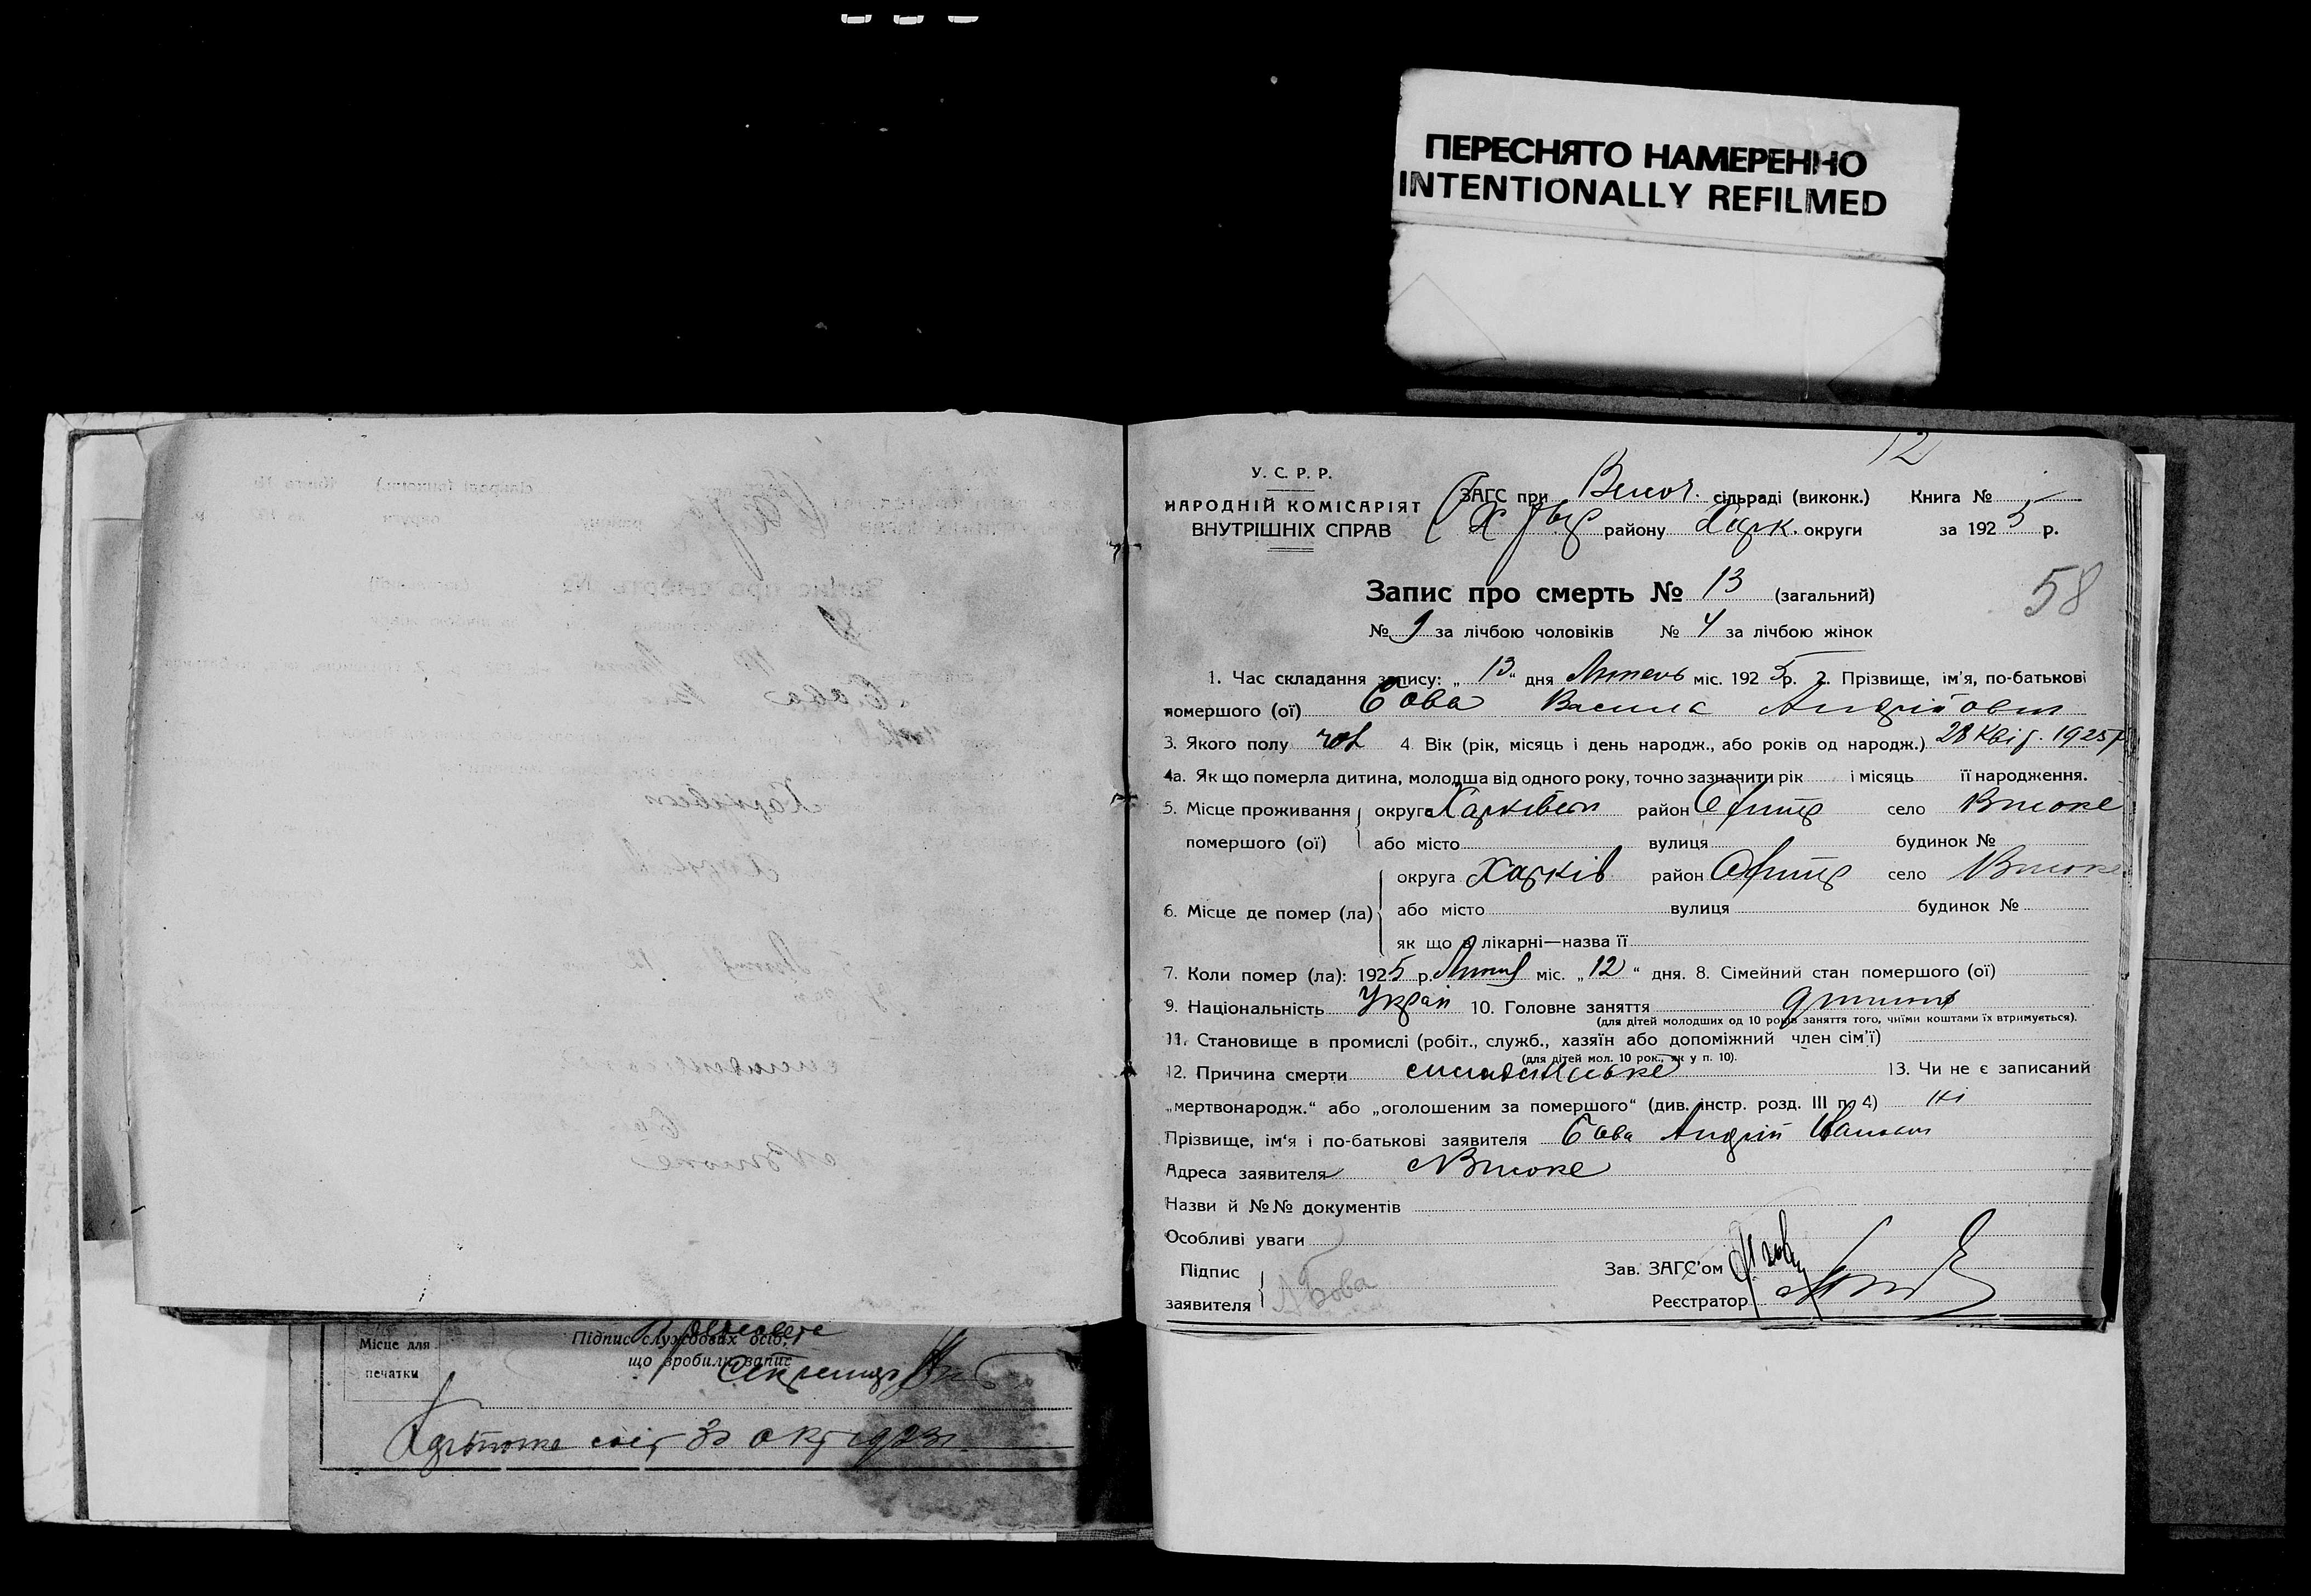 ПЕРЕСНЯТО НАМЕРЕННО
INTENTIONALLY REFILMED
12
У. С. Р. Р.
НАРОДНІЙ КОМІСАРІЯТ
ВНУТРІШНІХ СПРАВ
ЗАГС при Височ. сільраді (виконк.) Книга №
району Харк. округи за 1925 р.
Запис про смерть № 13 (загальний)
58
№ 9 за лічбою чоловіків № 4 за лічбою жінок
1. Час складання запису: „ 13 " дня Липень міс. 1925 р. 2. Прізвище, ім'я, по-батькові
помершого (ої) Бова Василь Андрійович
3. Якого полу чол 4. Вік (рік, місяць і день народж., або років од народж.) 28 Квіт. 1925 р
4а. Як що померла дитина, молодша від одного року, точно зазначити рік і місяць її народження.
5. Місце проживання помершого (ої) округа Харківськ район село Високе
або місто вулиця будинок №
6. Місце де помер (ла) округа Харків район село Високе
або місто вулиця будинок №
як що в лікарні—назва її
7. Коли помер (ла): 1925 р. Липня міс. „ 12 " дня. 8. Сімейний стан помершого (ої)
9. Національність Украін 10. Головне заняття дитина
(для дітей молодших од 10 років заняття того, чиїми коштами їх втримується).
11. Становище в промислі (робіт., служб., хазяїн або допоміжний член сім'ї)
(для дітей мол. 10 рок., як у п. 10).
12. Причина смерти 13. Чи не є записаний
„мертвонародж." або „оголошеним за помершого" (див. інстр. розд. III п. 4) ні
Прізвище, ім'я і по-батькові заявителя Бова Андрій
Адреса заявителя с Високе
Назви й №№ документів
Особливі уваги
Підпис заявителя А Бова
Зав. ЗАГС'ом
Реєстратор
Місце для печатки
Підпис службових осіб,
що зробили запис
30 окт 1923